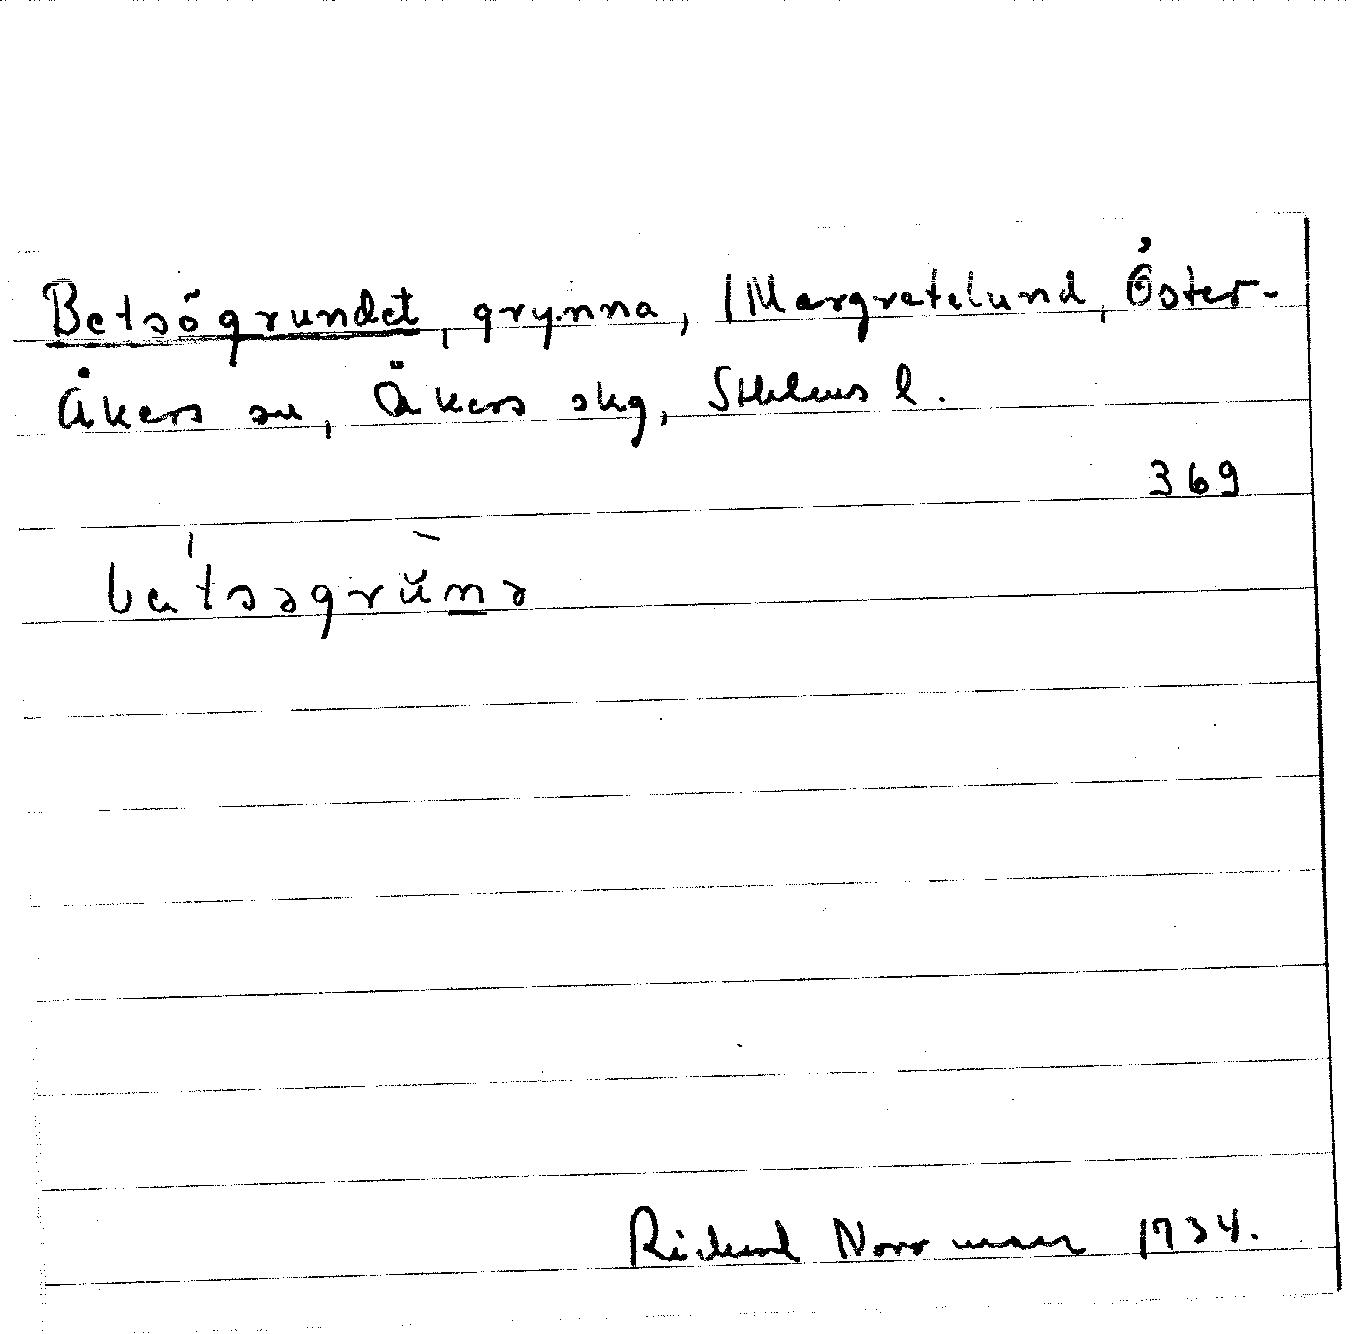 Betsögrundet, grynna, Margretelund, Öster-
Åkers sn, Åkers skg, Sthlms l.
369
be̍tsəgrŭ̀nə
Rickard Norrman 1934.